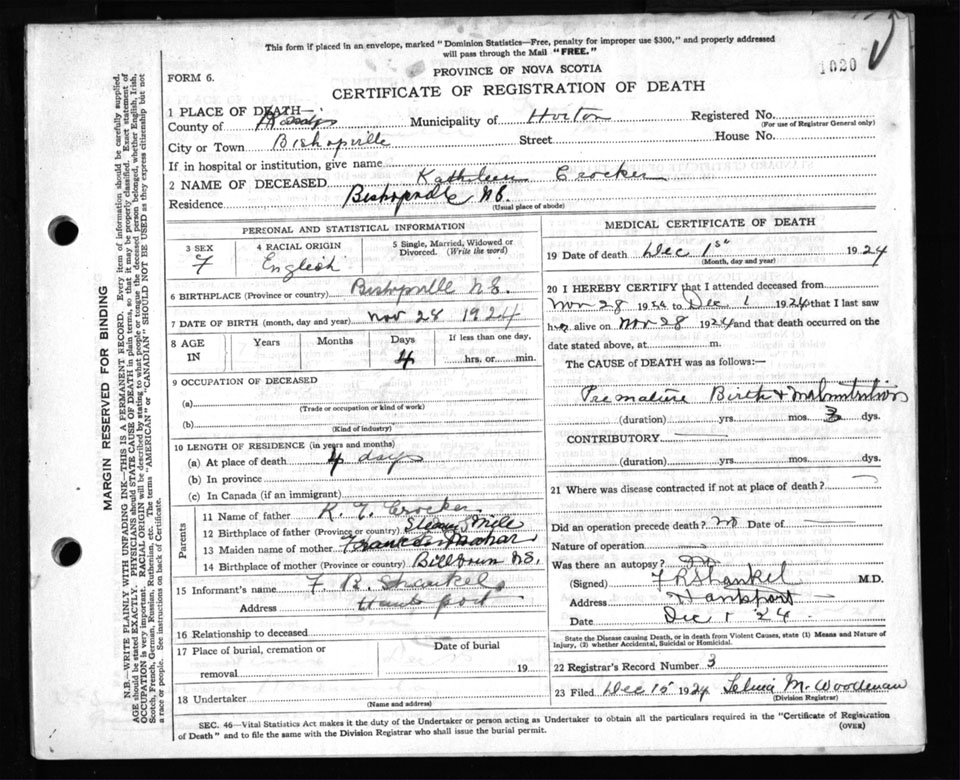 This form if placed in an envelope, marked "Dominion Statistics—Free, penalty for improper use $300," and properly addressed
will pass through the Mail "FREE."
1020
PROVINCE OF NOVA SCOTIA
FORM 6.
CERTIFICATE OF REGISTRATION OF DEATH
1 PLACE OF DEATH—
County of Municipality of Horton Registered No.
(For use of Registrar General only)
City or Town Bishopville Street House No.
If in hospital or institution, give name
2 NAME OF DECEASED Kathleen Crocker
Residence Bishopville N.S.
(Usual place of abode)
PERSONAL AND STATISTICAL INFORMATION
3 SEX F
4 RACIAL ORIGIN English
5 Single, Married, Widowed or Divorced. (Write the word)
6 BIRTHPLACE (Province or country) Bishopville N.S.
7 DATE OF BIRTH (month, day and year) Nov 28 1924
8 AGE IN Years Months Days 4 If less than one day, hrs. or min.
9 OCCUPATION OF DECEASED
(a)
(Trade or occupation or kind of work)
(b)
(Kind of industry)
10 LENGTH OF RESIDENCE (in years and months)
(a) At place of death 4 days
(b) In province
(c) In Canada (if an immigrant)
Parents
11 Name of father Crocker
12 Birthplace of father (Province or country) Mile
13 Maiden name of mother
14 Birthplace of mother (Province or country) N.S.
15 Informant's name F. R. Shankel
Address Hantsport
16 Relationship to deceased
17 Place of burial, cremation or removal Date of burial 19
18 Undertaker
(Name and address)
MEDICAL CERTIFICATE OF DEATH
19 Date of death Dec 1st 1924
(Month, day and year)
20 I HEREBY CERTIFY that I attended deceased from
Nov 28 1924 to Dec 1 1924 that I last saw
her alive on Nov 28 1924 and that death occurred on
date stated above, at m.
The CAUSE OF DEATH was as follows:—
Premature Birth & Malnutrition
(duration) yrs. mos. 3 dys.
CONTRIBUTORY
(duration) yrs. mos. dys.
21 Where was disease contracted if not at place of death?
Did an operation precede death? no Date of
Nature of operation
Was there an autopsy? no
(Signed) F R Shankel M.D.
Address Hantsport
Date Dec 1 24
State the Disease causing Death, or in death from Violent Causes, state (1) Means and Nature of
Injury, (2) whether Accidental, Suicidal or Homicidal.
22 Registrar's Record Number 3
23 Filed Dec 15 1924 Selina M. Woodman
(Division Registrar)
SEC. 46—Vital Statistics Act makes it the duty of the Undertaker or person acting as Undertaker to obtain all the particulars required in the "Certificate of Registration
of Death" and to file the same with the Division Registrar who shall issue the burial permit.
(OVER)
MARGIN RESERVED FOR BINDING
N.B.—WRITE PLAINLY WITH UNFADING INK—THIS IS A PERMANENT RECORD. Every item of information should be carefully supplied.
AGE should be stated EXACTLY. PHYSICIANS should STATE CAUSE OF DEATH in plain terms, so that it may be properly classified. Exact statement of
OCCUPATION is very important. RACIAL ORIGIN will be described by stating to what people or tongue the deceased person belonged, whether English, Irish,
Scotch, French, German, Russian, Ruthenian, etc. The terms "AMERICAN" or "CANADIAN" SHOULD NOT BE USED as they express citizenship but not
a race or people. See instructions on back of Certificate.